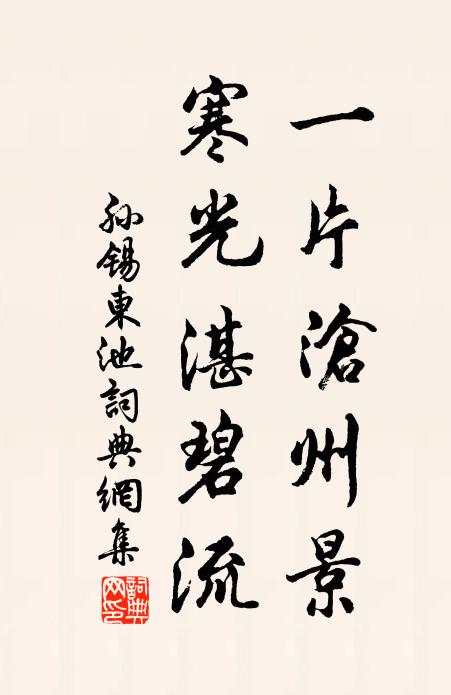 一片滄州景
寒光湛碧流
孫錫東池詞典網集
詞典網印